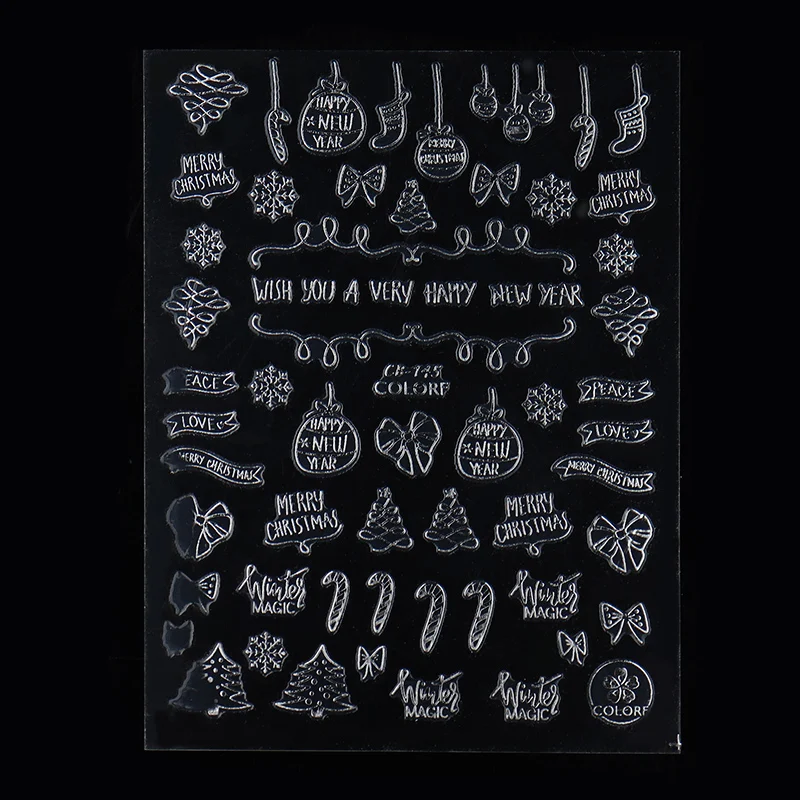 HAPPY
NEW
YEAR
MERRY
CHRISTMAS
MERRY
CHRISTMAS
MERRY
CHRISTMAS
WISH YOU A VERY HAPPY NEW YEAR
CB-745
COLORF
PEACE
PEACE
LOVE
LOVE
HAPPY
NEW
YEAR
HAPPY
NEW
YEAR
MERRY CHRISTMAS
MERRY CHRISTMAS
MERRY
CHRISTMAS
MERRY
CHRISTMAS
Winter
MAGIC
Winter
MAGIC
Winter
MAGIC
Winter
MAGIC
COLORF